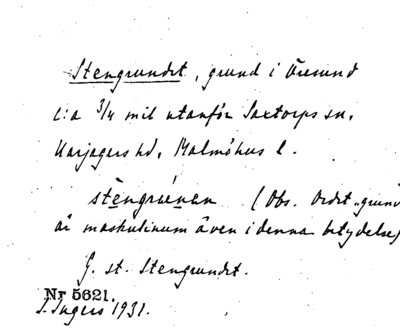 Stengrundet, grund i Öresund
c:a 3/4 mil utanför Saxtorps sn,
Harjagers hd, Malmöhus l.
stengrunen (Obs. Ordet „grund
är maskulinum även i denna betydelse)
G. st. Stengrundet.
Nr 5621.
I. Ingers 1931.